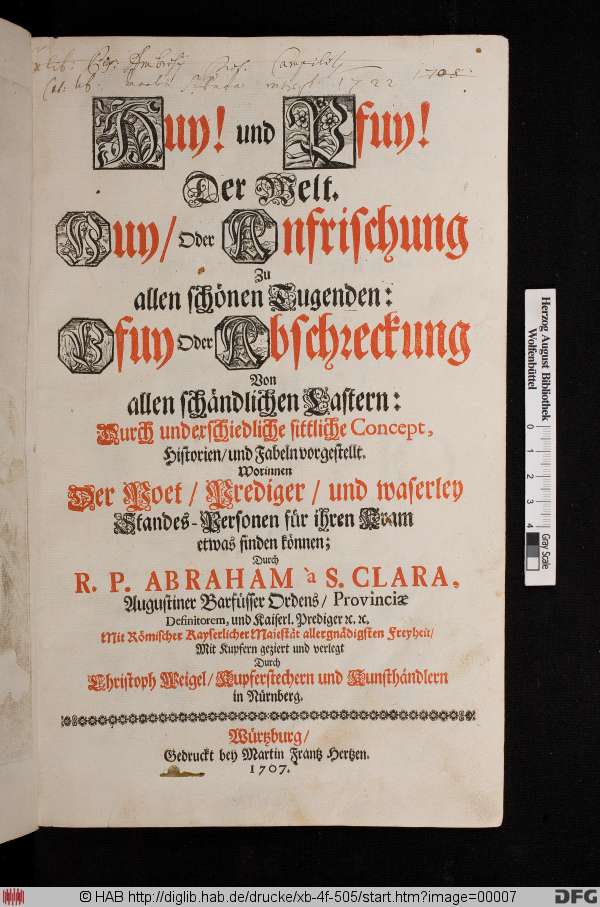 1722 1708.
Huy! und Pfuy!
Der Welt.
Huy/ Oder Anfrischung
Zu
allen schönen Tugenden:
Pfuy Oder Abschreckung
Von
allen schändlichen Lastern:
Durch underschiedliche sittliche Concept,
Historien/ und Fabeln vorgestellt.
Worinnen
Der Poet / Prediger / und waserley
Standes-Personen für ihren Kram
etwas finden können;
Durch
R. P. ABRAHAM à S. CLARA,
Augustiner Barfüsser Ordens/ Provinciæ
Definitorem, und Kaiserl. Prediger ꝛc. ꝛc.
Mit Römischer Kayserlicher Maiestät allergnädigsten Freyheit/
Mit Kupfern geziert und verlegt
Durch
Christoph Weigel/ Kupferstechern und Kunsthändlern
in Nürnberg.
Würtzburg/
Gedruckt bey Martin Frantz Hertzen.
1707.
Herzog August Bibliothek
Wolfenbüttel
0 1 2 3 4
Gray Scale
© HAB http://diglib.hab.de/drucke/xb-4f-505/start.htm?image=00007
DFG